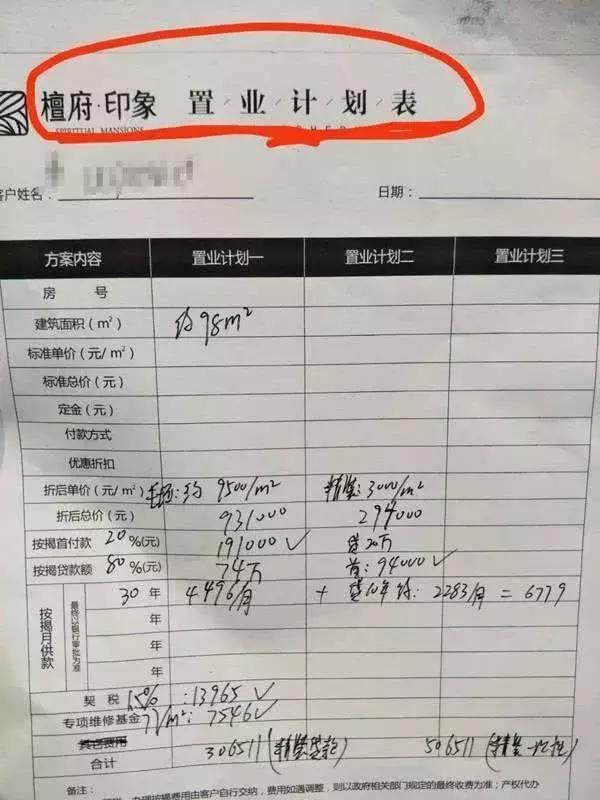 檀府·印象 置/业/计/划/表
SPIRITUAL MANSIONS
客户姓名： 日期：
方案内容 置业计划一 置业计划二 置业计划三
房 号
建筑面积（m²） 约98m²
标准单价（元/m²）
标准总价（元）
定金（元）
付款方式
优惠折扣
折后单价（元/m²） 毛坯：约 9500/m² 精装：3000/m²
折后总价（元） 931000 294000
按揭首付款 20 %(元) 191000√ 贷20万
按揭贷款额 80 %(元) 74万 首：94000√
按揭月供款 最终以银行审批为准 30 年 4496/月 + 贷10年 2283/月 = 6779
年
年
年
契 税 1.5% :13965√
专项维修基金 77/m²: 7546√
其它费用
合计 306511 (精装贷款) 506511 (精装一次性)
备注：
办理按揭费用由客户自行交纳，费用如遇调整，则以政府相关部门规定的最终收费为准；产权代办